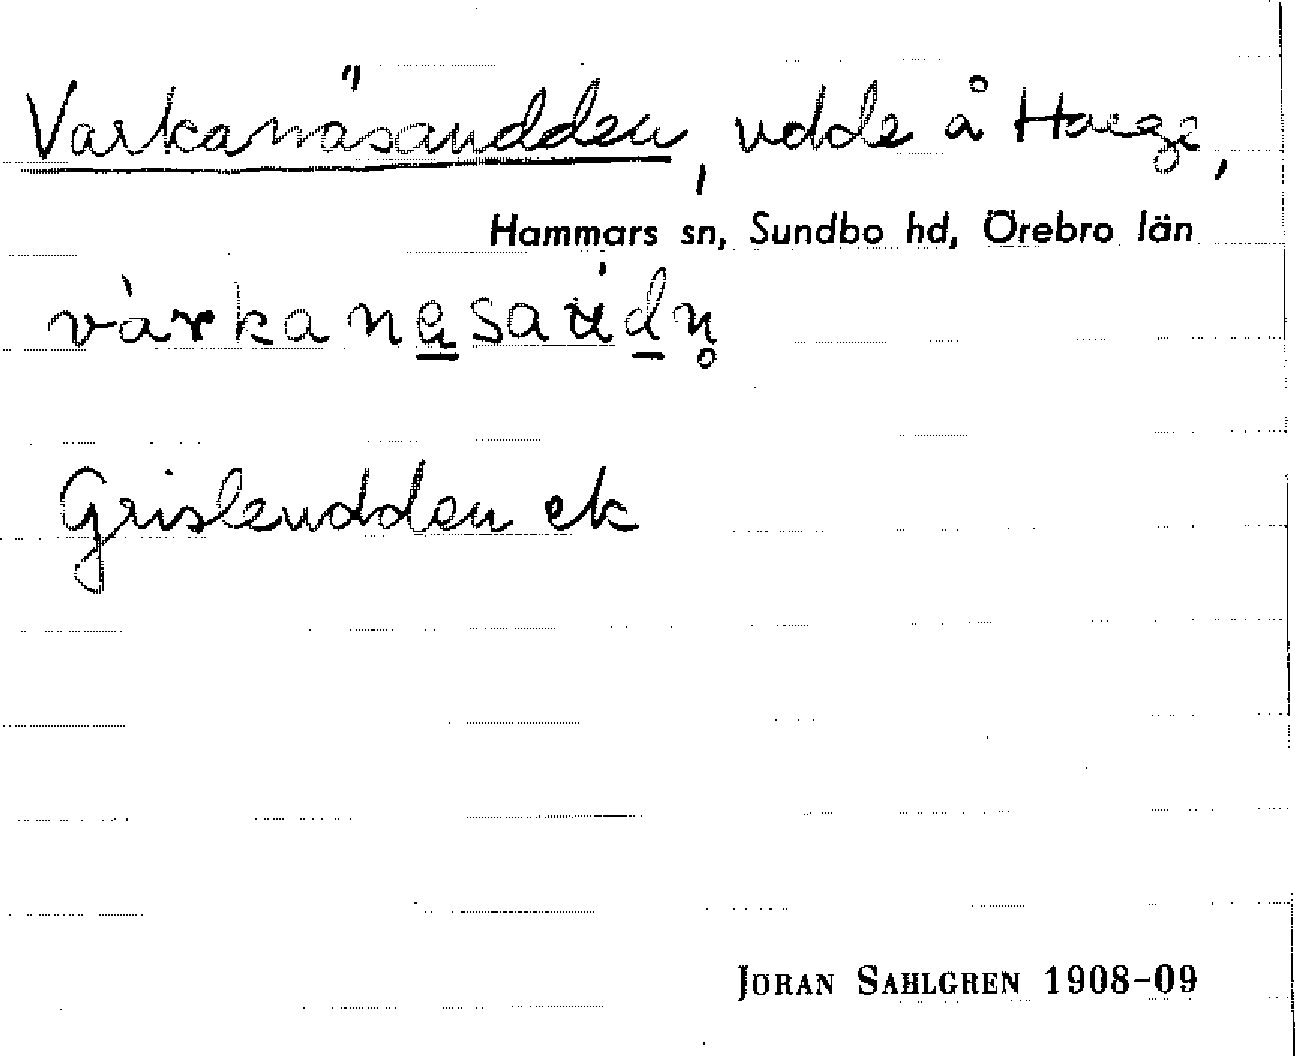 Varkanäsaudden, udde å Harge,
Hammars sn, Sundbo hd, Örebro län
Grisleudden ek
JÖRAN SAHLGREN 1908-09